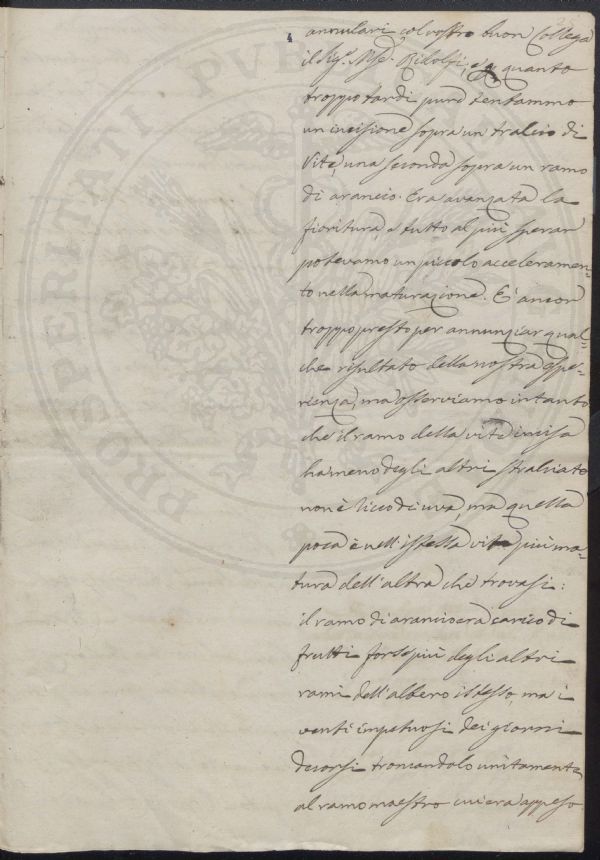 4
annulari col vostro buon Collega
il Sig.r M.se Ridolfi, e quanto
troppo tardi pure tentammo
un incisione sopra un tralcio di
Vite, una seconda sopra un ramo
di arancio. Era avanzata la
fioritura, e tutto al più sperar
potevamo un piccolo acceleramen-
to nella maturazione. E' ancor
troppo presto per annunziar qual-
che risultato della nostra espe-
rienza, ma osserviamo intanto
che il ramo della vite incisa
ha meno degli altri stralciato
non è ricco di uva, ma quella
poca è nell'istessa vite più ma-
tura dell'altra che trovasi:
il ramo di arancio era carico di
frutti forse più degli altri
rami dell'albero istesso, ma i
venti impetuosi dei giorni
decorsi troncandolo unitamente
al ramo maestro cui era appeso
PROSPERITATI PUB